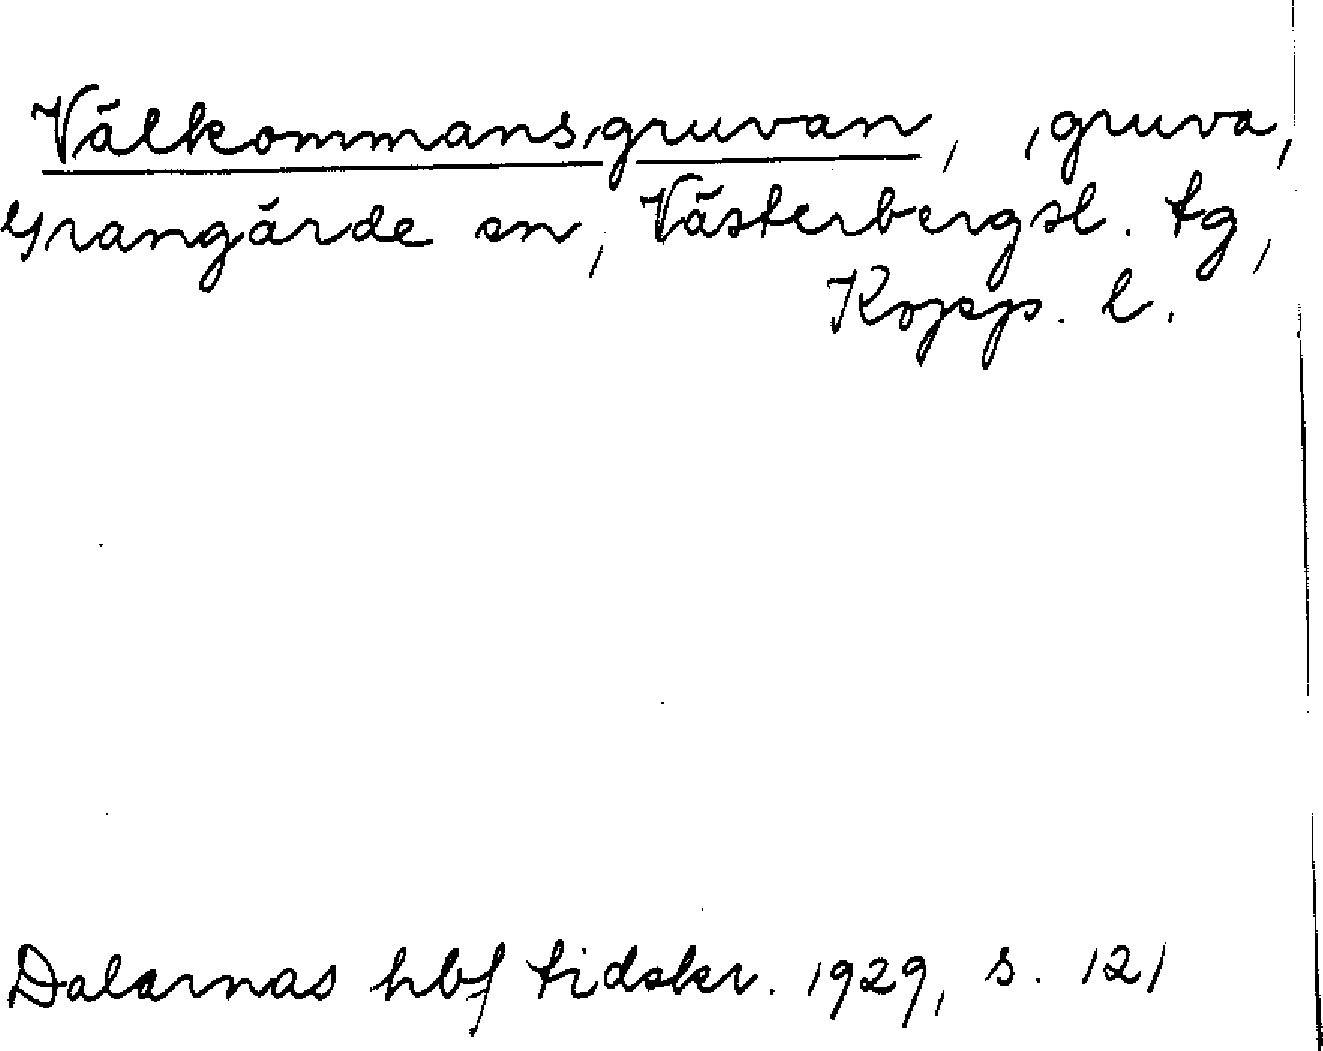 Välkommansgruvan, gruva,
Grangärde sn, Västerbergsl. tg,
Kopp. l.
Dalarnas hbf tidskr. 1929, s. 121